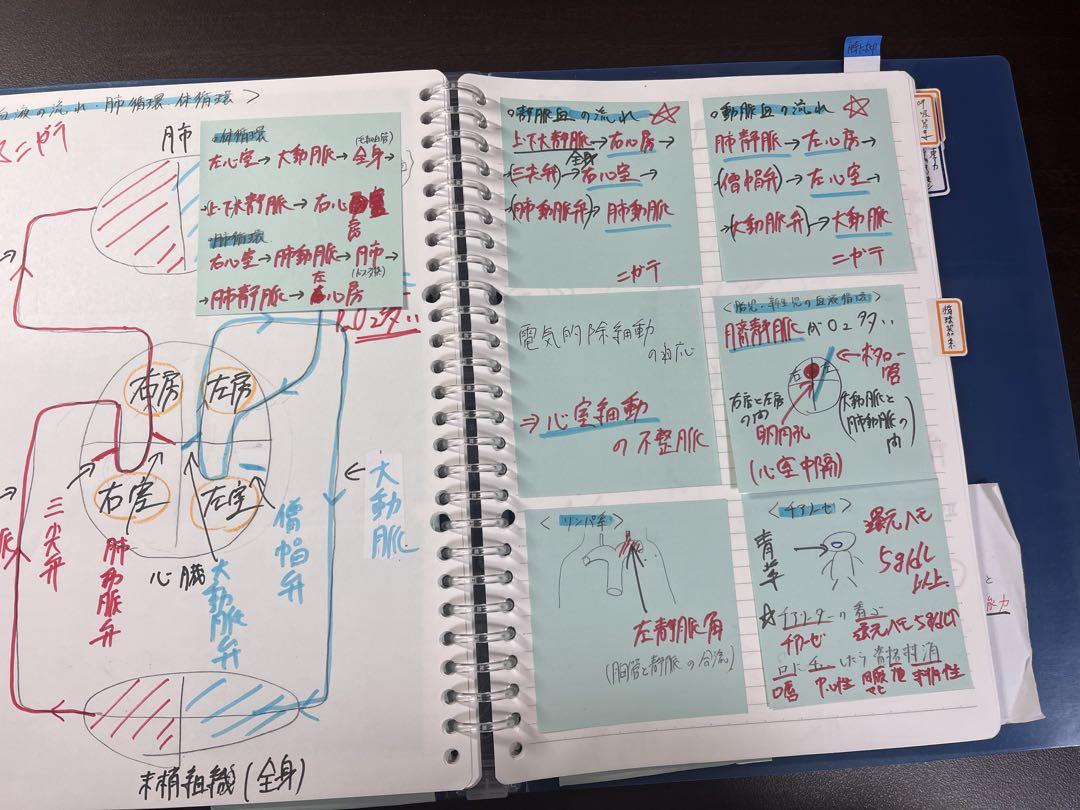 の流れ・肺循環 体循環>
ニガテ
肺
・体循環
(毛細血管)
左心室→大動脈→全身→
→上・下大静脈→右心房
・肺循環
右心室→肺動脈→肺→
(ガス交換)
→肺静脈→左心房
O2多い
右房
左房
右室
左室
三尖弁
肺動脈弁
心臓
大動脈弁
僧帽弁
←大動脈
末梢組織(全身)
・静脈血の流れ☆
上・下大静脈→右心房→
全身
(三尖弁)→右心室→
(肺動脈弁)→肺動脈
ニガテ
・動脈血の流れ☆
肺静脈→左心房→
(僧帽弁)→左心室→
→(大動脈弁)→大動脈
ニガテ
電気的除細動
の適応
⇒心室細動
の不整脈
<胎児・新生児の血液循環>
臍静脈がO2多い
右
左
←ボタロー管
右房と左房の間
卵円孔
(心室中隔)
(大動脈と肺動脈の間)
<リンパ系>
左静脈角
(胸管と静脈の合流)
<チアノーゼ>
還元ヘモ
5g/dL
以上
☆チアノーゼ
還元ヘモ5g/dl
口唇
中心性
循環器系